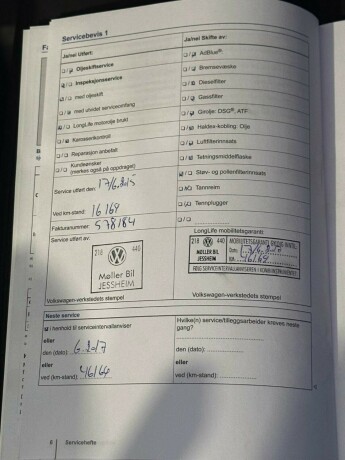 Servicebevis 1
Ja/nei Utført:
Ja/nei Skifte av:
Oljeskiftservice
AdBlue®
Inspeksjonsservice
Bremsevæske
med oljeskift
Dieselfilter
med utvidet serviceomfang
Gassfilter
LongLife motorolje brukt
Girolje: DSG®, ATF
Karosserikontroll
Haldex-kobling: Olje
Reparasjon anbefalt
Luftfilterinnsats
Kundeønsker
(merkes også på oppdraget)
Tetningsmiddelflaske
Støv- og pollenfilterinnsats
Service utført den: 17/6.2015
Tannreim
Ved km-stand: 16169
Tennplugger
Fakturanummer: 578184
Service utført av:
LongLife mobilitetsgaranti:
218 440
Møller Bil
JESSHEIM
218 440
Møller Bil
JESSHEIM
Volkswagen-verkstedets stempel
Volkswagen-verkstedets stempel
Neste service
i henhold til serviceintervallanviser
Hvilke(n) service/tilleggsarbeider kreves neste gang?
eller
den (dato): 6.2017
eller
ved (km-stand): 46164
eller
den (dato):
eller
ved (km-stand)
6 Servicehefte